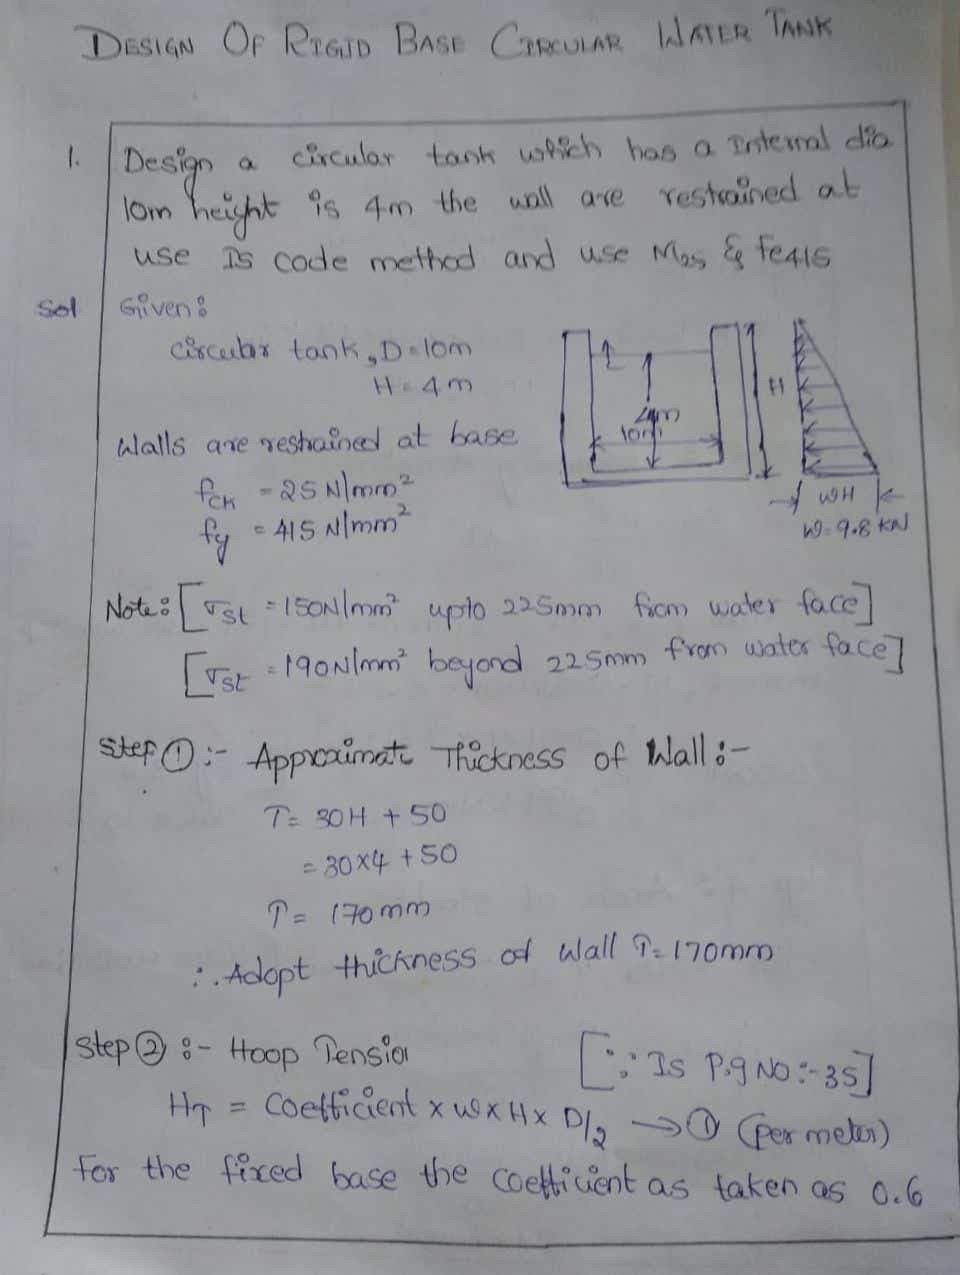 DESIGN OF RIGID BASE CIRCULAR WATER TANK
1. Design a circular tank which has a Internal dia
10m height is 4m the wall are restrained at
use IS code method and use M25 & fe415
Sol Given:
circular tank, D=10m
H=4m
Walls are restrained at base
fck = 25 N/mm²
fy = 415 N/mm²
4m
10m
H
WH
W=9.8 KN
Note: [σst = 150N/mm² upto 225mm from water face]
[σst = 190N/mm² beyond 225mm from water face]
Step ① :- Approximate Thickness of Wall :-
T= 30H + 50
= 30x4 + 50
T= 170mm
∴ Adopt thickness of Wall T=170mm
Step ② :- Hoop Tension [∵ Is P.g NO:-35]
HT = Coefficient x w x H x D/2 → ① (per meter)
For the fixed base the coefficient as taken as 0.6